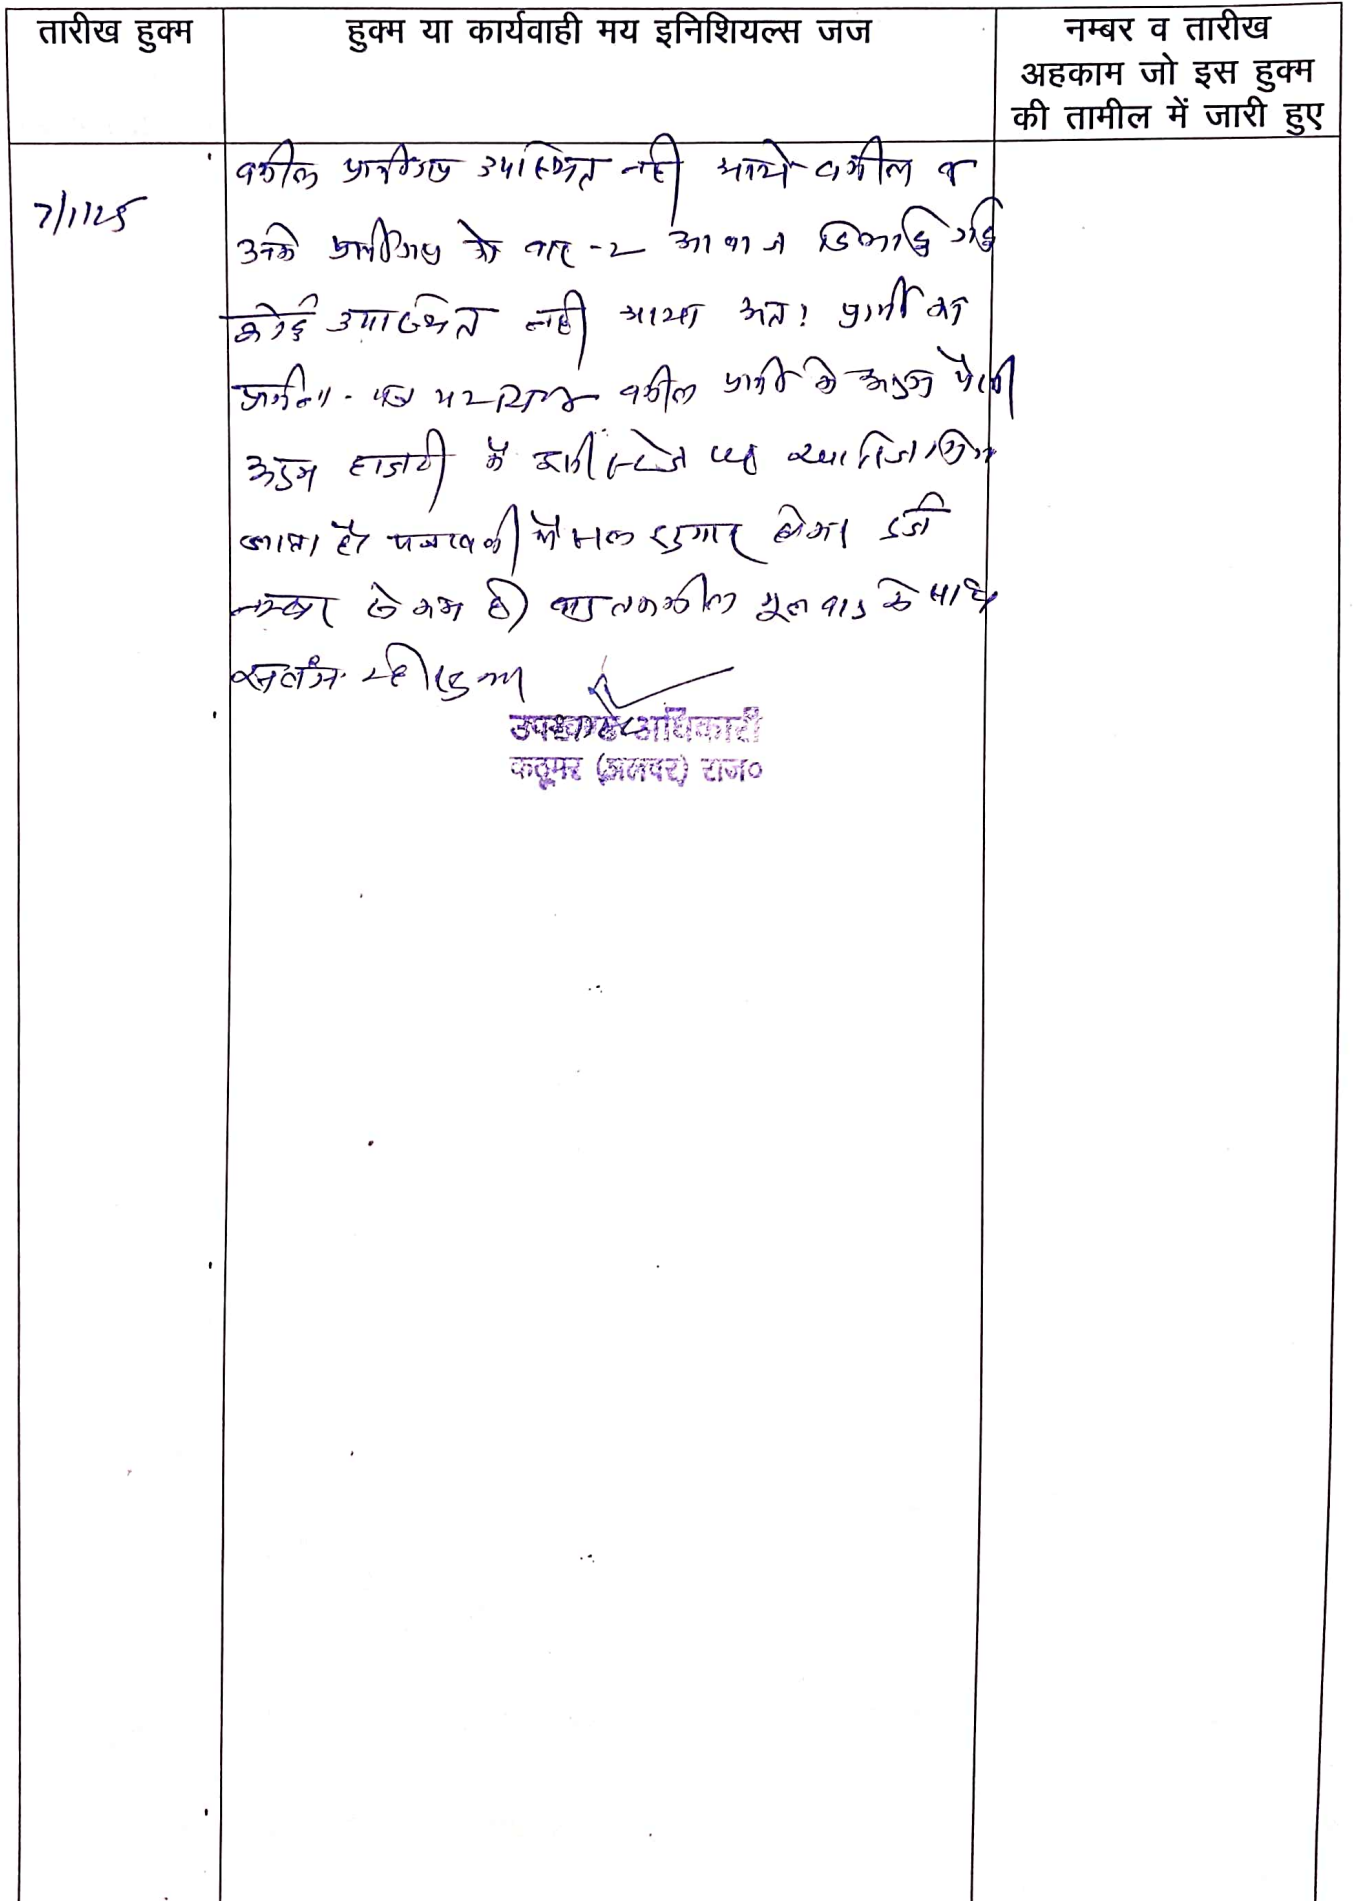 तारीख हुक्म
हुक्म या कार्यवाही मय इनिशियल्स जज
नम्बर व तारीख
अहकाम जो इस हुक्म
की तामील में जारी हुए
7/1/25
वकील प्रार्थीगण उपस्थित नही आये वकील व
उनके प्रार्थीगण को बार-2 आवाज दिलाई गई
कोई उपस्थित नही आया अतः प्रार्थी का
प्रार्थना-पत्र वकील प्रार्थी के अदम पैरवी
अदम हाजरी में इसी स्टेज पर खारिज किया
जाता है। पत्रावली फैसल शुमार होकर दर्ज
नम्बर से कम हो मूल वाद के साथ
संलग्न रहे।
उपखण्ड अधिकारी
कठूमर (अलवर) राज०